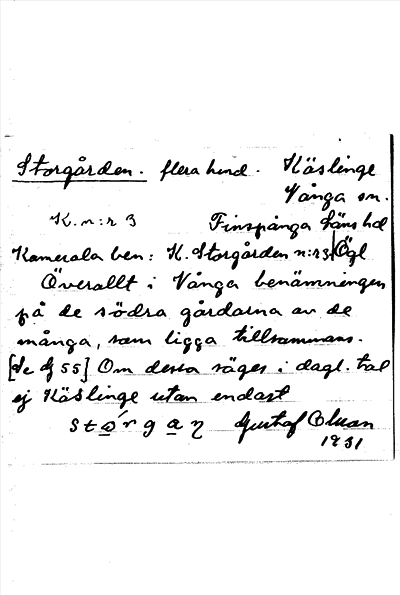 Storgården. flera hend. Käslinge
Vånga sn.
K. n:r 3 Finspånga läns hd
Kamerala ben: K. Storgården n:r 3 Ögl
Överallt i Vånga benämningen
på de södra gårdarna av de
många, som ligga tillsammans.
[Se 55] Om dessa säges i dagl. tal
ej Käslinge utan endast
stǫ́rgaŋ Gustaf Olsson
1931